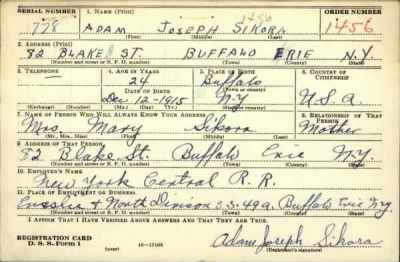 SERIAL NUMBER 1. NAME (Print) ORDER NUMBER
778 ADAM JOSEPH SIKORA 1456
(First) (Middle) (Last)
2. ADDRESS (Print)
82 BLAKE ST. BUFFALO ERIE N.Y.
(Number and street or R. F. D. number) (Town) (County) (State)
3. TELEPHONE 4. AGE IN YEARS 5. PLACE OF BIRTH 6. COUNTRY OF CITIZENSHIP
24 Buffalo
DATE OF BIRTH (Town or county)
Dec 12-1915 N.Y. U.S.A.
(Exchange) (Number) (Mo.) (Day) (Yr.) (State or country)
7. NAME OF PERSON WHO WILL ALWAYS KNOW YOUR ADDRESS 8. RELATIONSHIP OF THAT PERSON
Mrs. Mary Sikora Mother
(Mr., Mrs., Miss) (First) (Middle) (Last)
9. ADDRESS OF THAT PERSON
82 Blake St Buffalo Erie N.Y.
(Number and street or R. F. D. number) (Town) (County) (State)
10. EMPLOYER'S NAME
New York Central R. R.
11. PLACE OF EMPLOYMENT OR BUSINESS
& North Division S.S. 49 Buffalo Erie N.Y.
(Number and street or R. F. D. number) (Town) (County) (State)
I AFFIRM THAT I HAVE VERIFIED ABOVE ANSWERS AND THAT THEY ARE TRUE.
REGISTRATION CARD
D. S. S. Form 1 16-17105 Adam Joseph Sikora
(Registrant's signature)